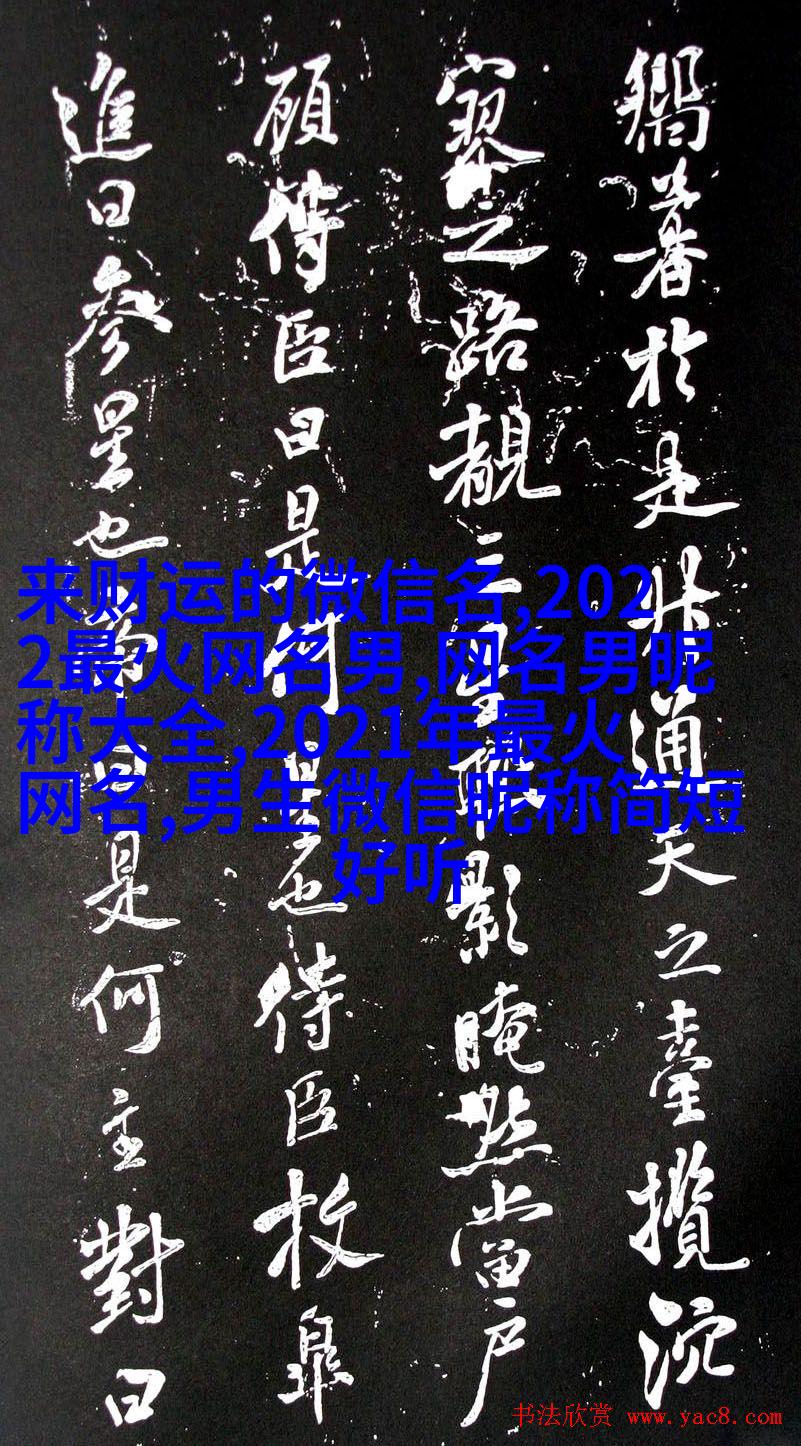 於是通天之臺攬沉
寥之路靚三星耿影晻當戶
顧侍臣曰是何星也侍臣枚皋
進曰參星也曰是何主對曰
来财运的微信名,202
2最火网名男,网名男昵
称大全,2021年最火
网名,男生微信昵称简短
好听
书法欣赏 www.yac8.com